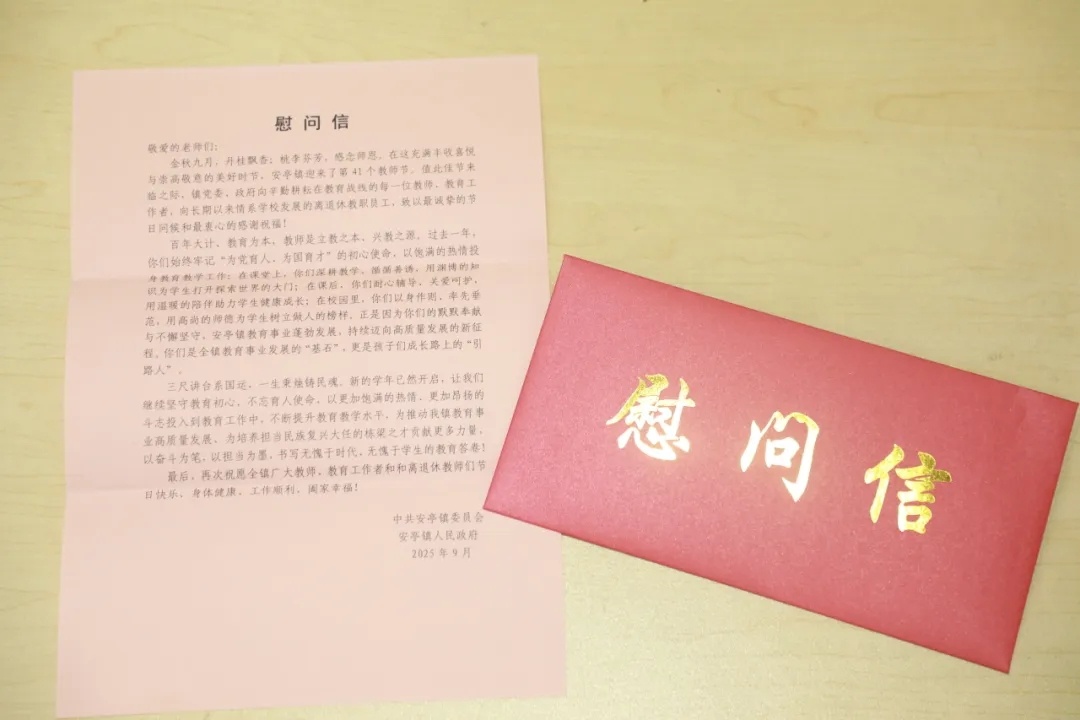 慰问信
敬爱的老师们：
金秋九月，丹桂飘香；桃李芬芳，感念师恩。在这充满丰收喜悦
与崇高敬意的美好时节，安亭镇迎来了第41个教师节。值此佳节来
临之际，镇党委、政府向辛勤耕耘在教育战线的每一位教师、教育工
作者，向长期以来情系学校发展的离退休教职员工，致以最诚挚的节
日问候和最衷心的感谢祝福！
百年大计，教育为本，教师是立教之本、兴教之源。过去一年，
你们始终牢记“为党育人、为国育才”的初心使命，以饱满的热情投
身教育教学工作：在课堂上，你们深耕教学、循循善诱，用渊博的知
识为学生打开探索世界的大门；在课后，你们耐心辅导、关爱呵护，
用温暖的陪伴助力学生健康成长；在校园里，你们以身作则、率先垂
范，用高尚的师德为学生树立做人的榜样。正是因为你们的默默奉献
与不懈坚守，安亭镇教育事业蓬勃发展，持续迈向高质量发展的新征
程。你们是全镇教育事业发展的“基石”，更是孩子们成长路上的“引
路人”。
三尺讲台系国运，一生秉烛铸民魂。新的学年已然开启，让我们
继续坚守教育初心，不忘育人使命，以更加饱满的热情、更加昂扬的
斗志投入到教育工作中，不断提升教育教学水平，为推动我镇教育事
业高质量发展、为培养担当民族复兴大任的栋梁之才贡献更多力量，
以奋斗为笔，以担当为墨，书写无愧于时代、无愧于学生的教育答卷！
最后，再次祝愿全镇广大教师、教育工作者和和离退休教师们节
日快乐、身体健康、工作顺利、阖家幸福！
中共安亭镇委员会
安亭镇人民政府
2025年9月
慰问信